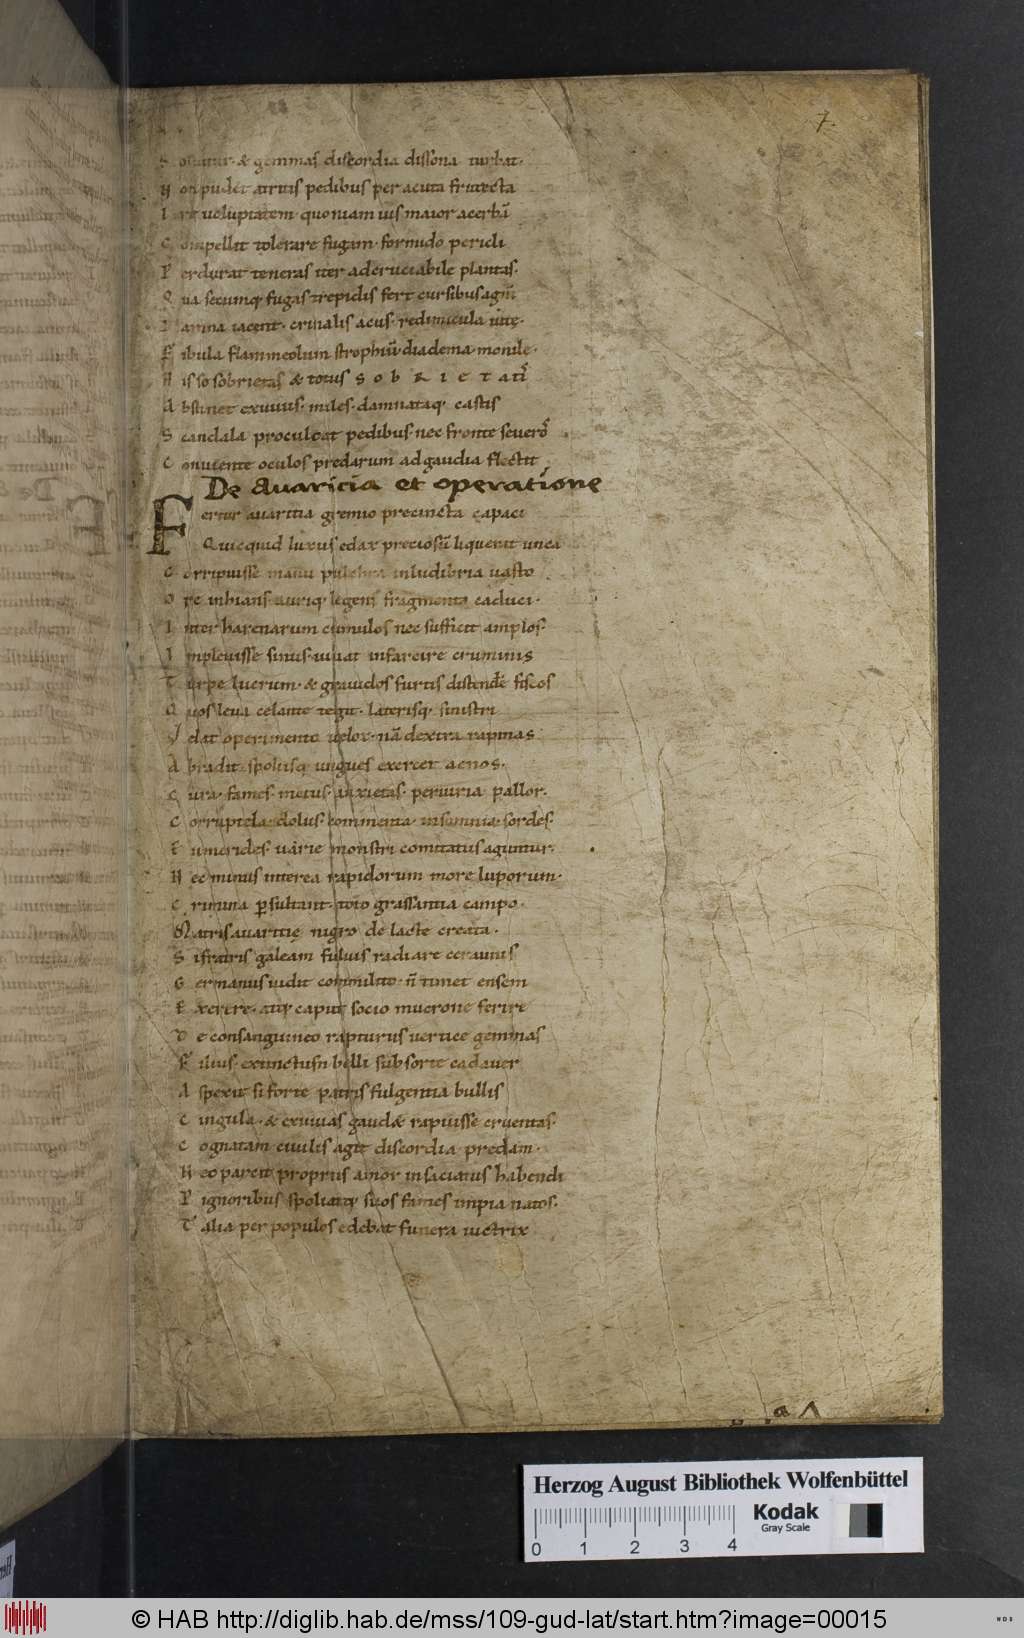 7.
ostrum & gemmas discordia dissona turbat.
N on pudet atritis pedibus per acuta frutecta
I re uoluptatem. quoniam uis maior acerbā
C ompellit tolerare fugam. formido pericli
P erdurat teneras iter adcruciabile plantas.
Q ua secumq; fugas trepidis fert cursibus agm̄
D amna iacent. crinalis acus. redimicula uitę.
F ibula flammeolum strophiū diadema monile.
H is se sobrietas & totus S O B R I E T ATI
A bstinet exuuiis. miles. damnataq; castis
S candala proculcat pedibus. nec fronte seuerō
C oniuente oculos predarum ad gaudia flectit
De Avaricia et operatione
F ertur auaritia gremio precincta capaci
Q uicquid luxus edax preciosū liquerat unca
C orripuisse manu pulchra inludibria uasto
O re inhians. auriq; legens fragmenta caduci.
I nter harenarum cumulos nec sufficit amplos.
I mpleuisse sinus. iuuat infarcire cruminis
T urpe lucrum. & grauidos furtis distendēe fiscos
Q uos leua celante tegit. laterisq; sinistri
V elat operimento uelox. nā dextra rapinas
A bradit. spoliisq; ungues exercet aenos.
C ura. fames. metus. anxietas. periuria pallor.
C orruptela. dolus. commenta. insomnia. sordes.
E umenides. uarie monstri comitatus aguntur.
N ec minus interea rapidorum more luporum.
C rimina p̄sultant. toto grassantia campo.
M atris auaritię nigro de lacte creata.
S i fratris galeam fuluis radiare ceraunis
G ermanus uidit commilito. n̄ timet ensem
E xerere. atq; caput socio mucrone ferire
D e consanguineo rapturus uertice gemmas
F ilius. extinctūsn belli sub sorte cadauer
A spexit si forte patris fulgentia bullis
C ingula. & exuuias gaud& rapuisse cruentas.
C ognatam ciuilis agit discordia predam.
N ec parcit propriis amor insaciatus habendi
P ignoribus spoliatq; suos fames impia natos.
T alia per populos edebat funera uictrix
Herzog August Bibliothek Wolfenbüttel
0 1 2 3 4
Kodak
Gray Scale
© HAB http://diglib.hab.de/mss/109-gud-lat/start.htm?image=00015